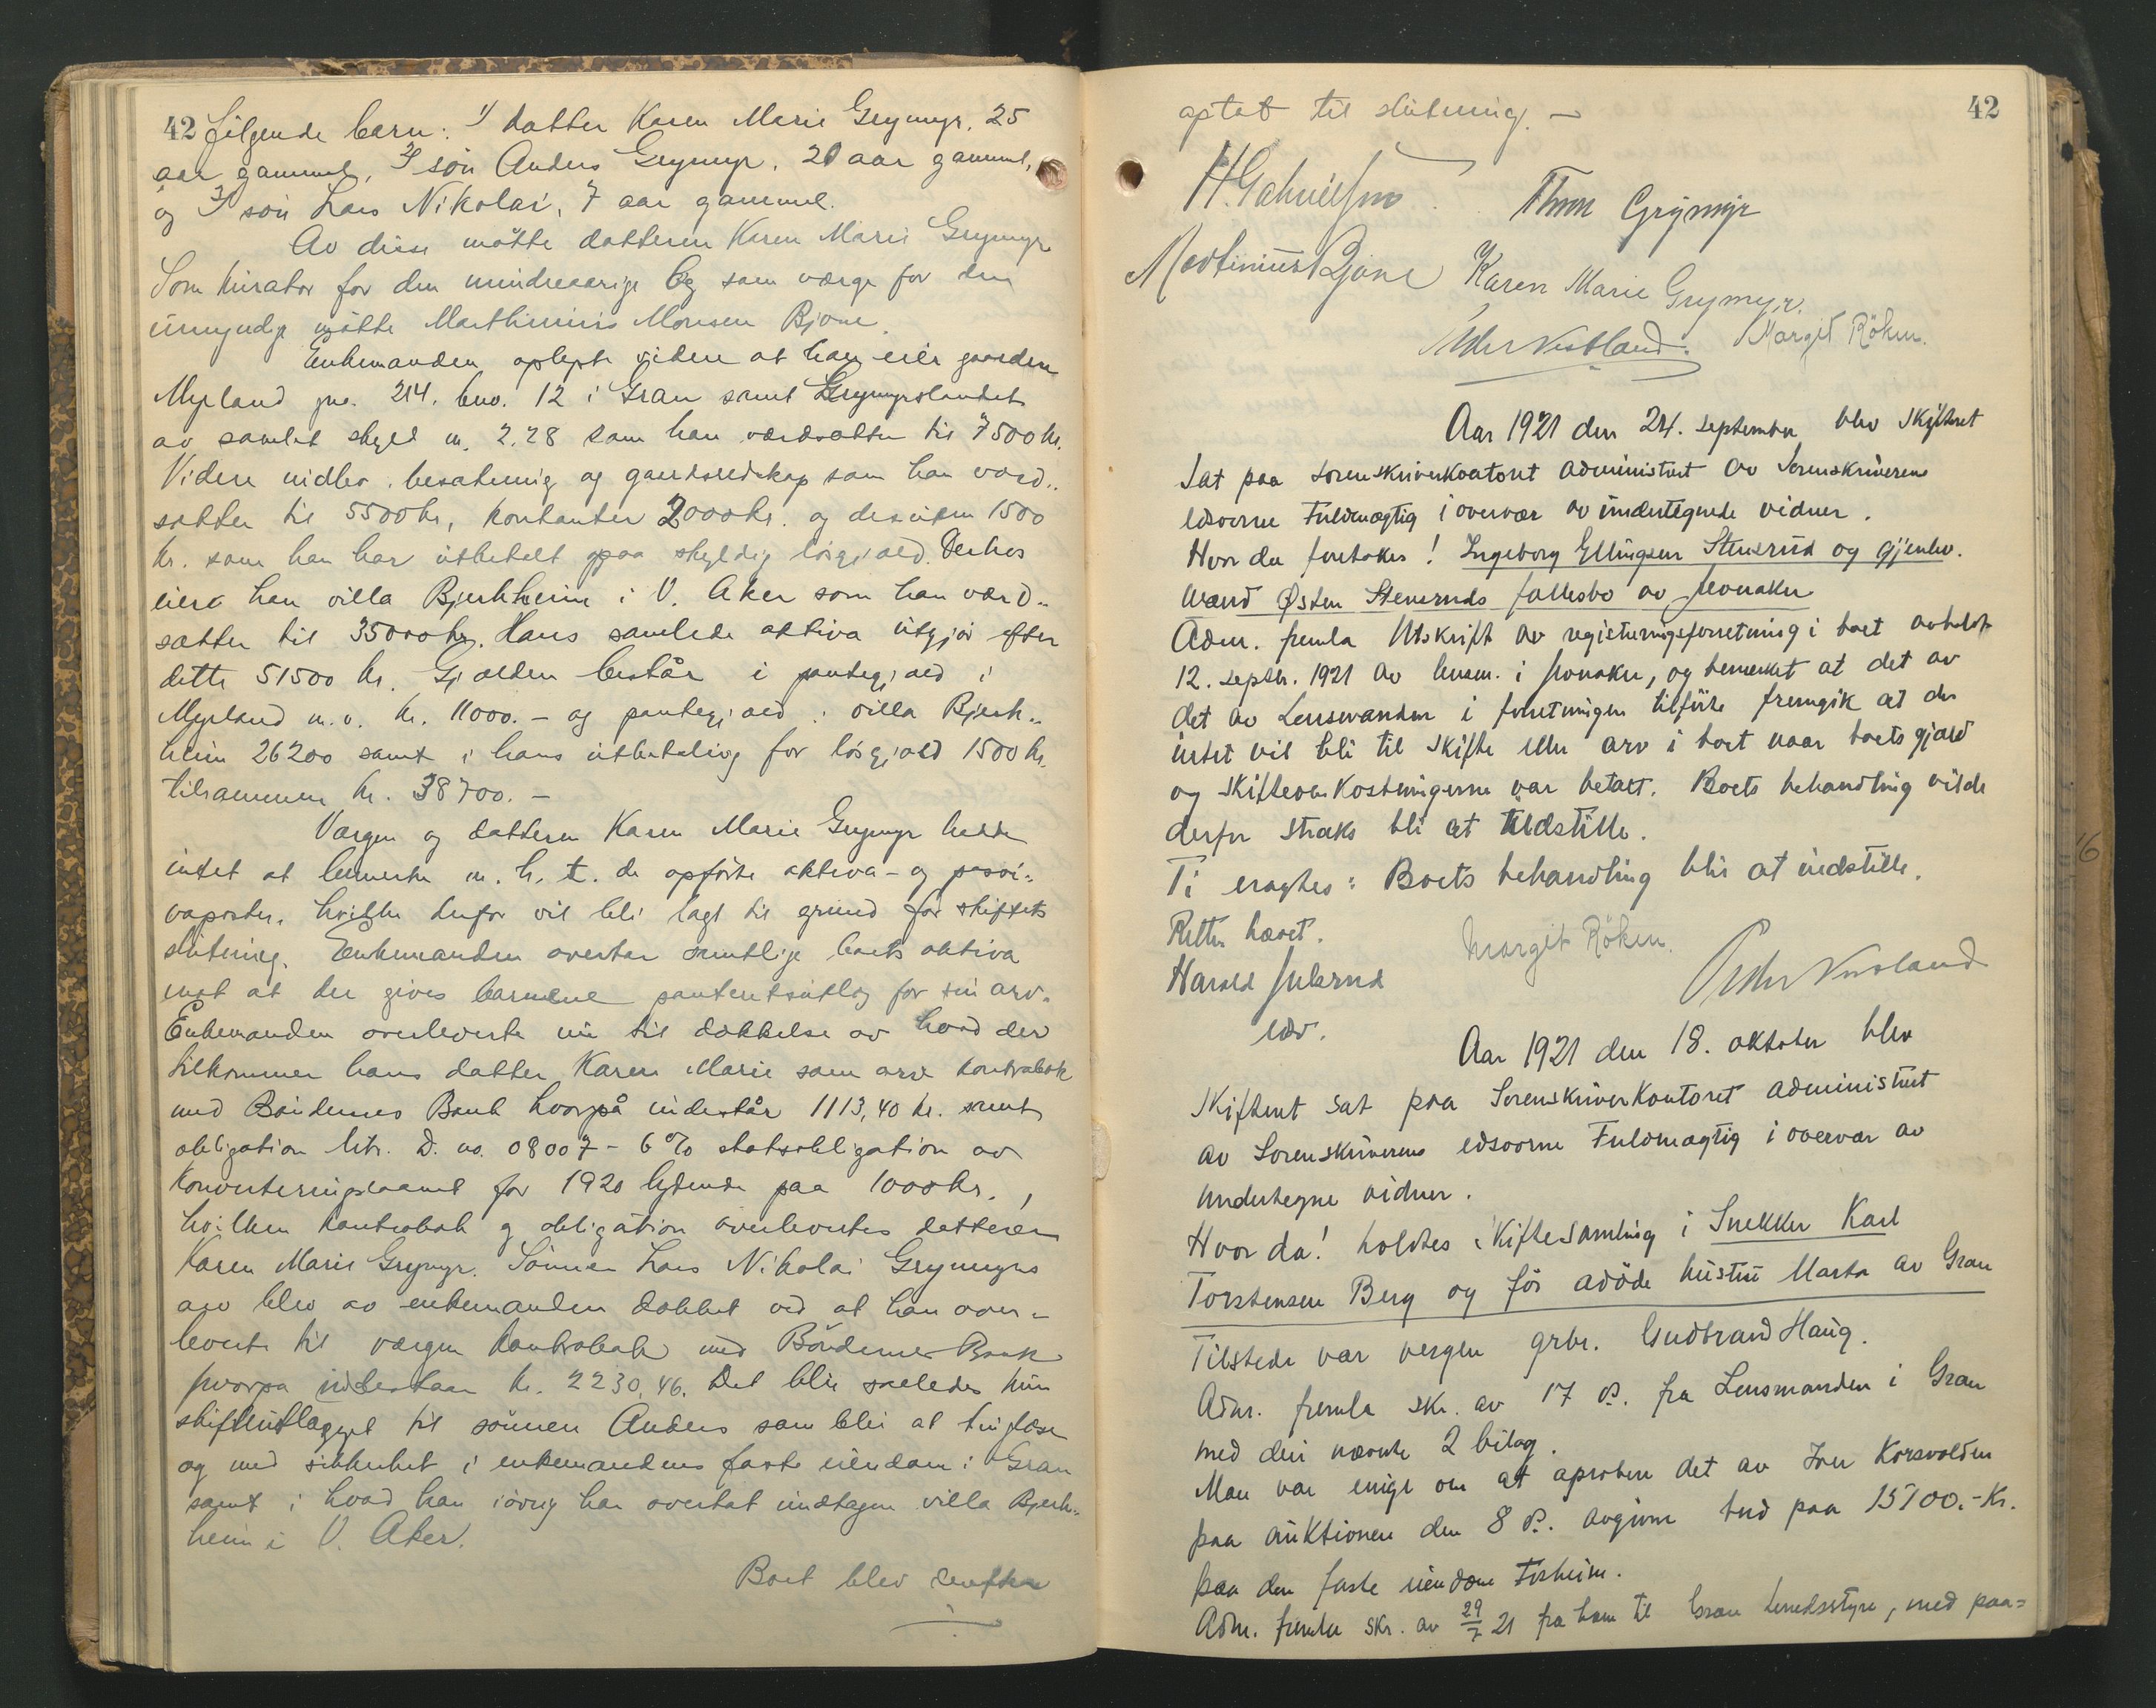 42 følgende barn: 1) datter Karen Marie Grymyr, 25
aar gammel, 2) søn Anders Grymyr, 20 aar gammel,
og 3) søn Lars Nikolai, 7 aar gammel.
Av disse møtte datteren Karen Marie Grymyr
Som kurator for den mindreaarige og som værge for den
umyndige møtte Marthinius Monsen Bjone.
Enkemanden oplyste videre at han eier gaarden
Myrland gno. 214, bno. 12 i Gran samt Grymyrslandet
av samlet skyld m. 2.28 som han værdsætter til 7500 kr.
Videre indbo, besætning og gaardsredskap som han værd-
sætter til 5500 kr, kontanter 2000 kr. og desuten 1500
kr. som han har utbetalt paa skyldig løsgjæld. Derhos
eier han villa Bjerkheim i V. Aker som han værd-
sætter til 35000 kr. Hans samlede aktiva utgjør efter
dette 51500 kr. Gjælden består i pantegjæld i
Myrland m.v. kr. 11000.- og pantegjæld i villa Bjerk-
heim 26200 samt i hans utbetaling for løsgjæld 1500 kr.
tilsammen kr. 38700.-
Værgen og datteren Karen Marie Grymyr hadde
intet at bemerke m. h. t. de opførte aktiva- og passi-
vaposter, hvilke derfor vil bli lagt til grund for skiftets
slutning. Enkemanden overtar samtlige boets aktiva
mot at der gives barnene panteretsutlæg for sin arv.
Enkemanden overleverte nu til dækkelse av hvad der
tilkommer hans datter Karen Marie som arv kontrabok
med Bøndernes Bank hvorpå indestår 1113,40 kr. samt
obligation litr. D. no. 08007 - 6% statsobligation av
Konverteringslaanet for 1920 lydende paa 1000 kr.,
hvilken kontrabok og obligation overleveres datteren
Karen Marie Grymyr. Sønnen Lars Nikolai Grymyrs
arv blev av enkemanden dækket ved at han over-
leverte til værgen kontrabok med Bøndernes Bank
hvorpa indestaar kr. 2230,46. Det blir saaledes kun
skifteutlægget til sønnen Anders som blir at tinglæse
og med sikkerhet i enkemandens faste eiendom i Gran
samt i hvad han iøvrig har overtat undtagen villa Bjerk-
heim i V. Aker.
Boet blev derefter
optat til slutning. - 42
H. Gabrielsen Thron Grymyr
Martinius Bjone Karen Marie Grymyr.
Peder Vestland. Margit Röken.
Aar 1921 den 24. september blev skifteret
sat paa sorenskriverkontoret administrert av sorenskriverens
edsvorne Fuldmægtig i overvær av undertegnede vidner.
Hvor da foretokes! Ingeborg Ellingsen Stensrud og gjenlev.
mand Østen Stensruds fællesbo av Jevnaker
Adm. fremla Utskrift av registreringsforretning i boet avholdt
12. septbr. 1921 av lensm. i Jevnaker, og bemerket at det av
det av Lensmanden i forretningen tilførte fremgik at der
intet vil bli til skifte eller arv i boet naar boets gjæld
og skifteomkostningerne var betalt. Boets behandling vilde
derfor straks bli at indstille.
Ti eragtes: Boets behandling blir at indstille.
Retten hævet.
Harald Julsrud Margit Röken. Peder Vestland
edsv.
Aar 1921 den 18. oktober blev
Skifteret sat paa Sorenskriverkontoret administrert
av Sorenskriverens edsvorne Fuldmægtig i overvær av
undertegne vidner.
Hvor da! holdtes skiftesamling i Snekker Karl
Torstensen Berg og før adöde hustru Marta av Gran
Tilstede var vergen grbr. Gudbrand Haug.
Adm. fremla skr. av 17 ds. fra Lensmanden i Gran
med deri nævnte 2 bilag.
Man var enige om at aprobere det av Iver Korsvolden
paa auktionen den 8 ds. avgivne bud paa 15100.- Kr.
paa den faste eiendom Torheim.
Adm. fremla skr. av 29/7 21 fra ham til Gran herredsstyre, med paa=